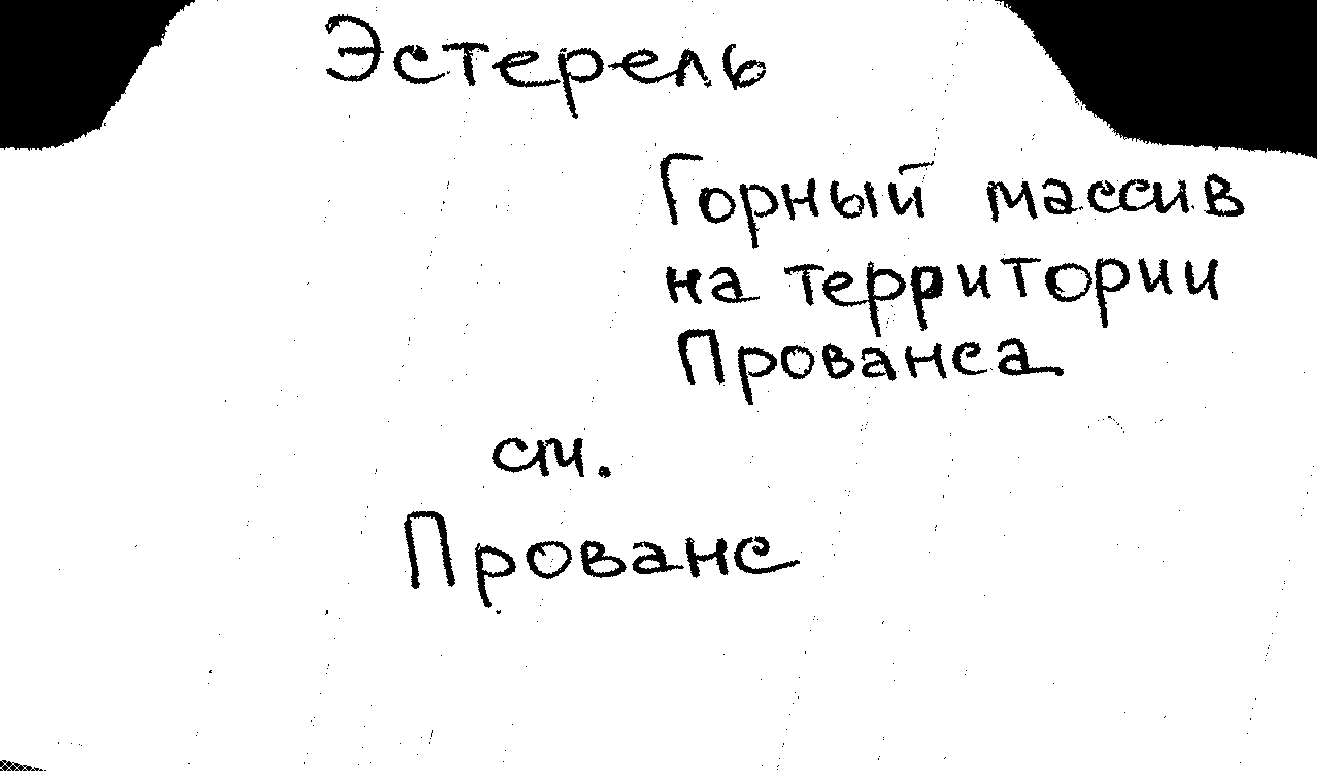 Эстерель
Горный массив
на территории
Прованса
см.
Прованс